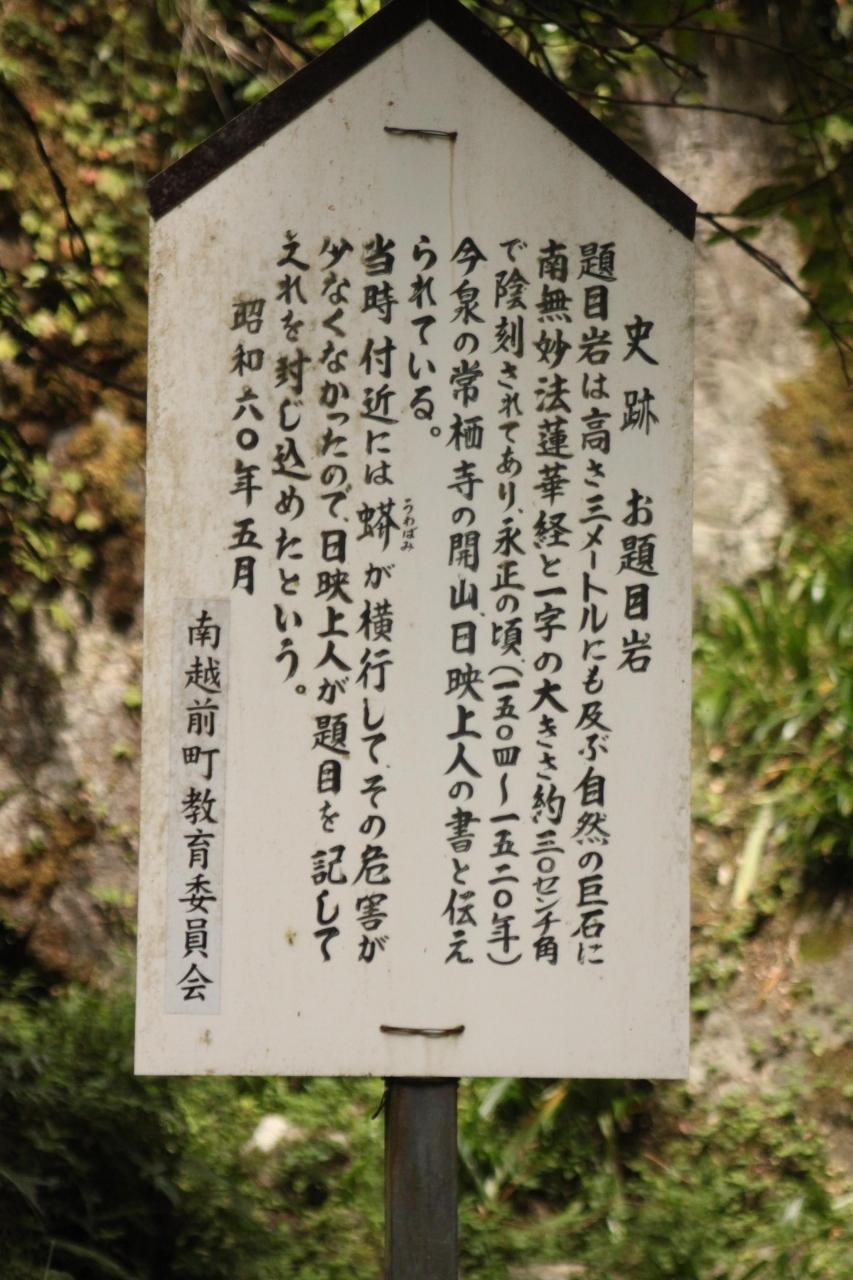 史跡 お題目岩
題目岩は高さ三メートルにも及ぶ自然の巨石に
南無妙法蓮華経と一字の大きさ約三〇センチ角
で陰刻されてあり、永正の頃、(一五〇四～一五二〇年)
今泉の常栖寺の開山、日映上人の書と伝え
られている。
当時付近には蟒が横行して、その危害が
うわばみ
少なくなかったので、日映上人が題目を記して
えれを封じ込めたという。
昭和六〇年五月
南越前町教育委員会